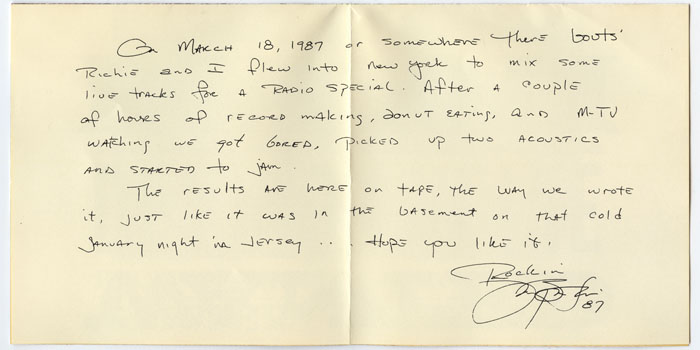 On March 18, 1987 or somewhere there bouts'
Richie and I flew into new york to mix some
live tracks for a RADIO SPECIAL. After a couple
of hours of record making, donut eating, and M-TV
watching we got bored, picked up two acoustics
and started to jam.
The results are here on tape, the way we wrote
it, just like it was in the basement on that cold
January night in Jersey ... Hope you like it.
Rockin
87